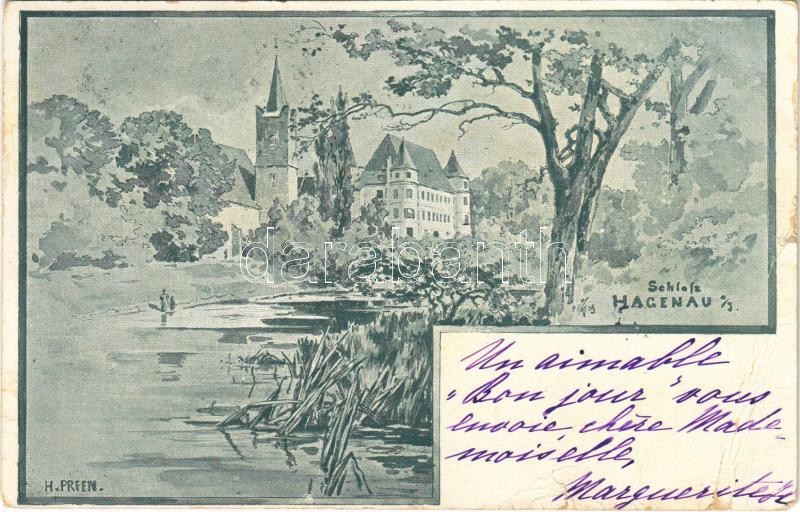 Schloß
HAGENAU a/J.
darabanth
Un aimable
„Bon jour" vous
envoie, chère Made
moiselle,
Marguerite
H. PREEN.